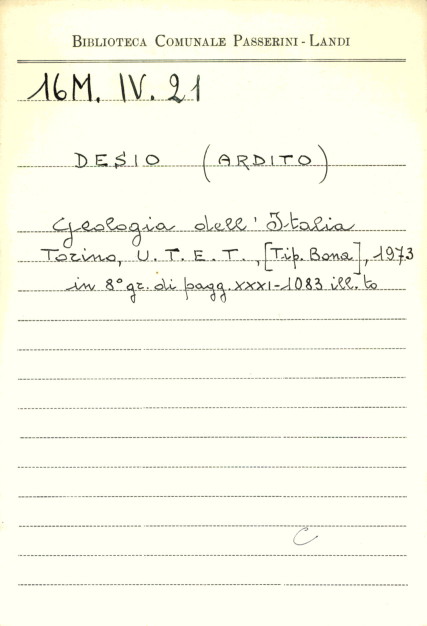 BIBLIOTECA COMUNALE PASSERINI - LANDI
16M. IV. 21
DESIO (ARDITO)
Geologia dell' Italia
Torino, U. T. E. T., [Tip. Bona], 1973
in 8° gr. di pagg. XXXI-1083 ill. to
C